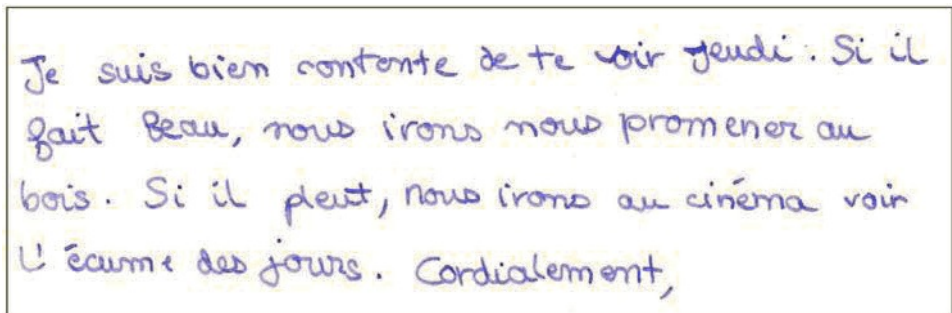 Je suis bien contente de te voir jeudi. Si il
fait Beau, nous irons nous promener au
bois. Si il pleut, nous irons au cinéma voir
L'écume des jours. Cordialement,